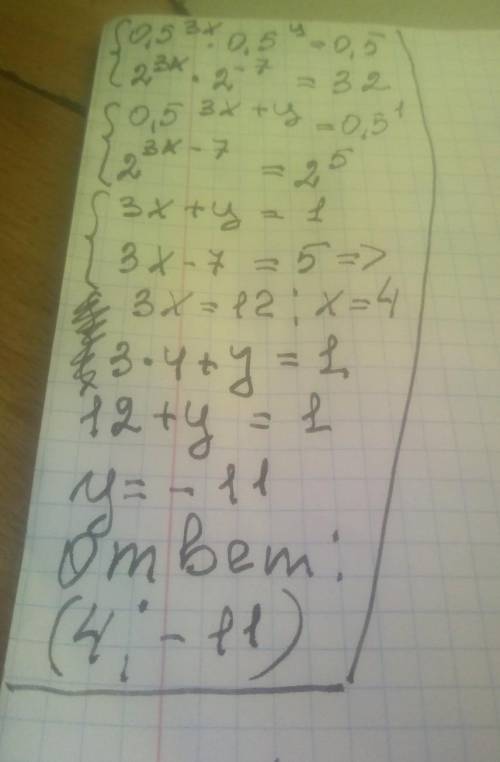 {0,5^3x · 0,5^y = 0,5
2^3x · 2^-7 = 32
{0,5^3x+y = 0,5^1
2^3x-7 = 2^5
{3x+y = 1
3x-7 = 5 =>
3x=12; x=4
3·4+y=1
12+y = 1
y=-11
Ответ:
(4; -11)